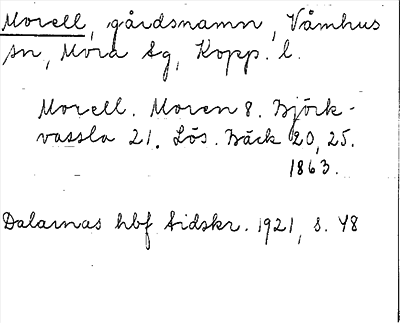 Morell, gårdsnamn, Våmhus
sn, Mora sg, Kopp. l.
Morell. Moren 8. Björk-
vassla 21. Lös. Bäck 20, 25.
1863.
Dalarnas hbf tidskr. 1921, s. 48